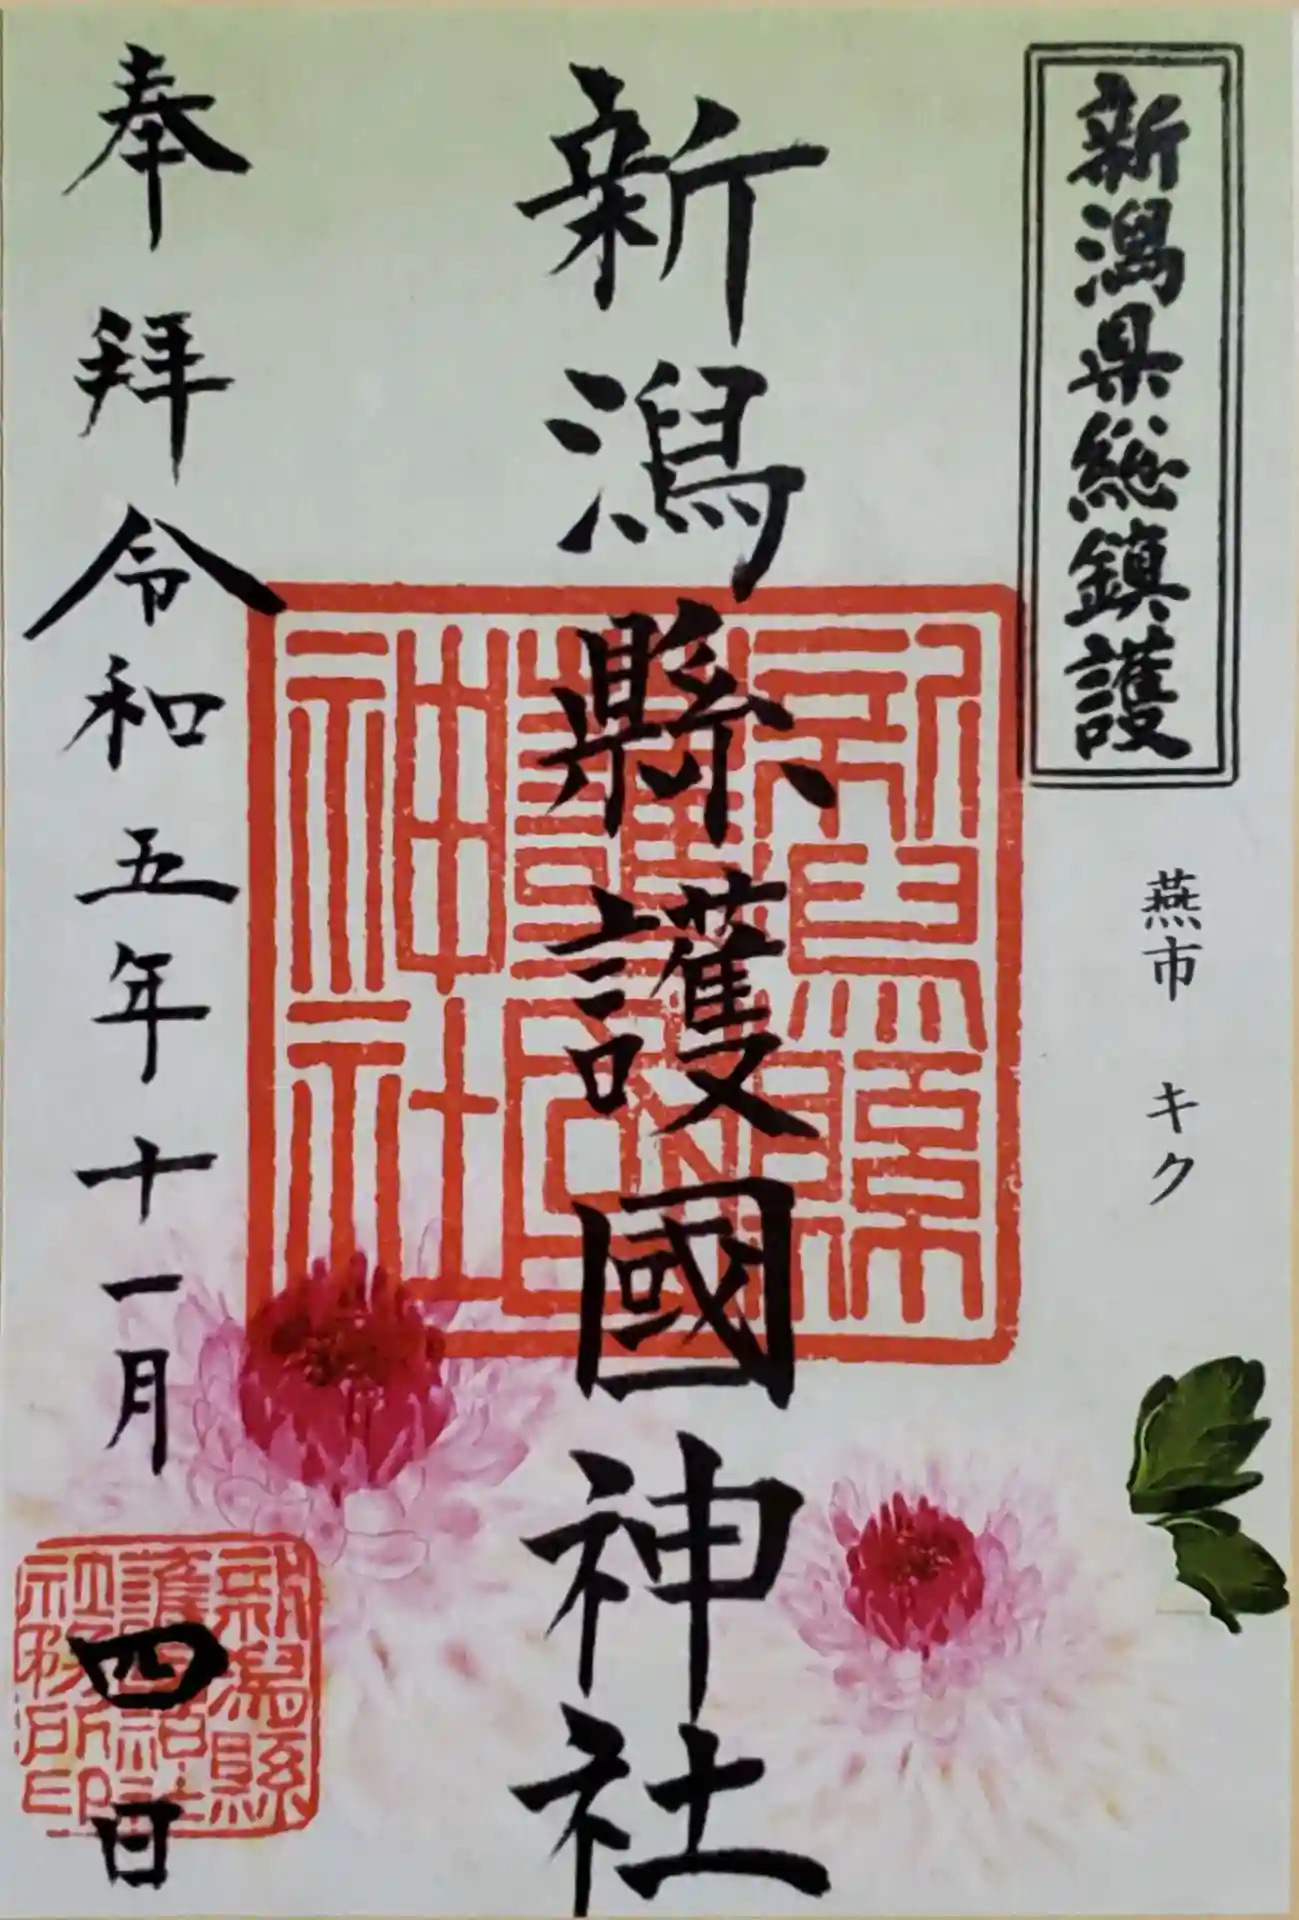 新潟県総鎮護
燕市 キク
新潟縣護國神社
奉拝 令和五年十一月四日
新潟縣
護國
神社
新潟縣
護國神社
社務所印